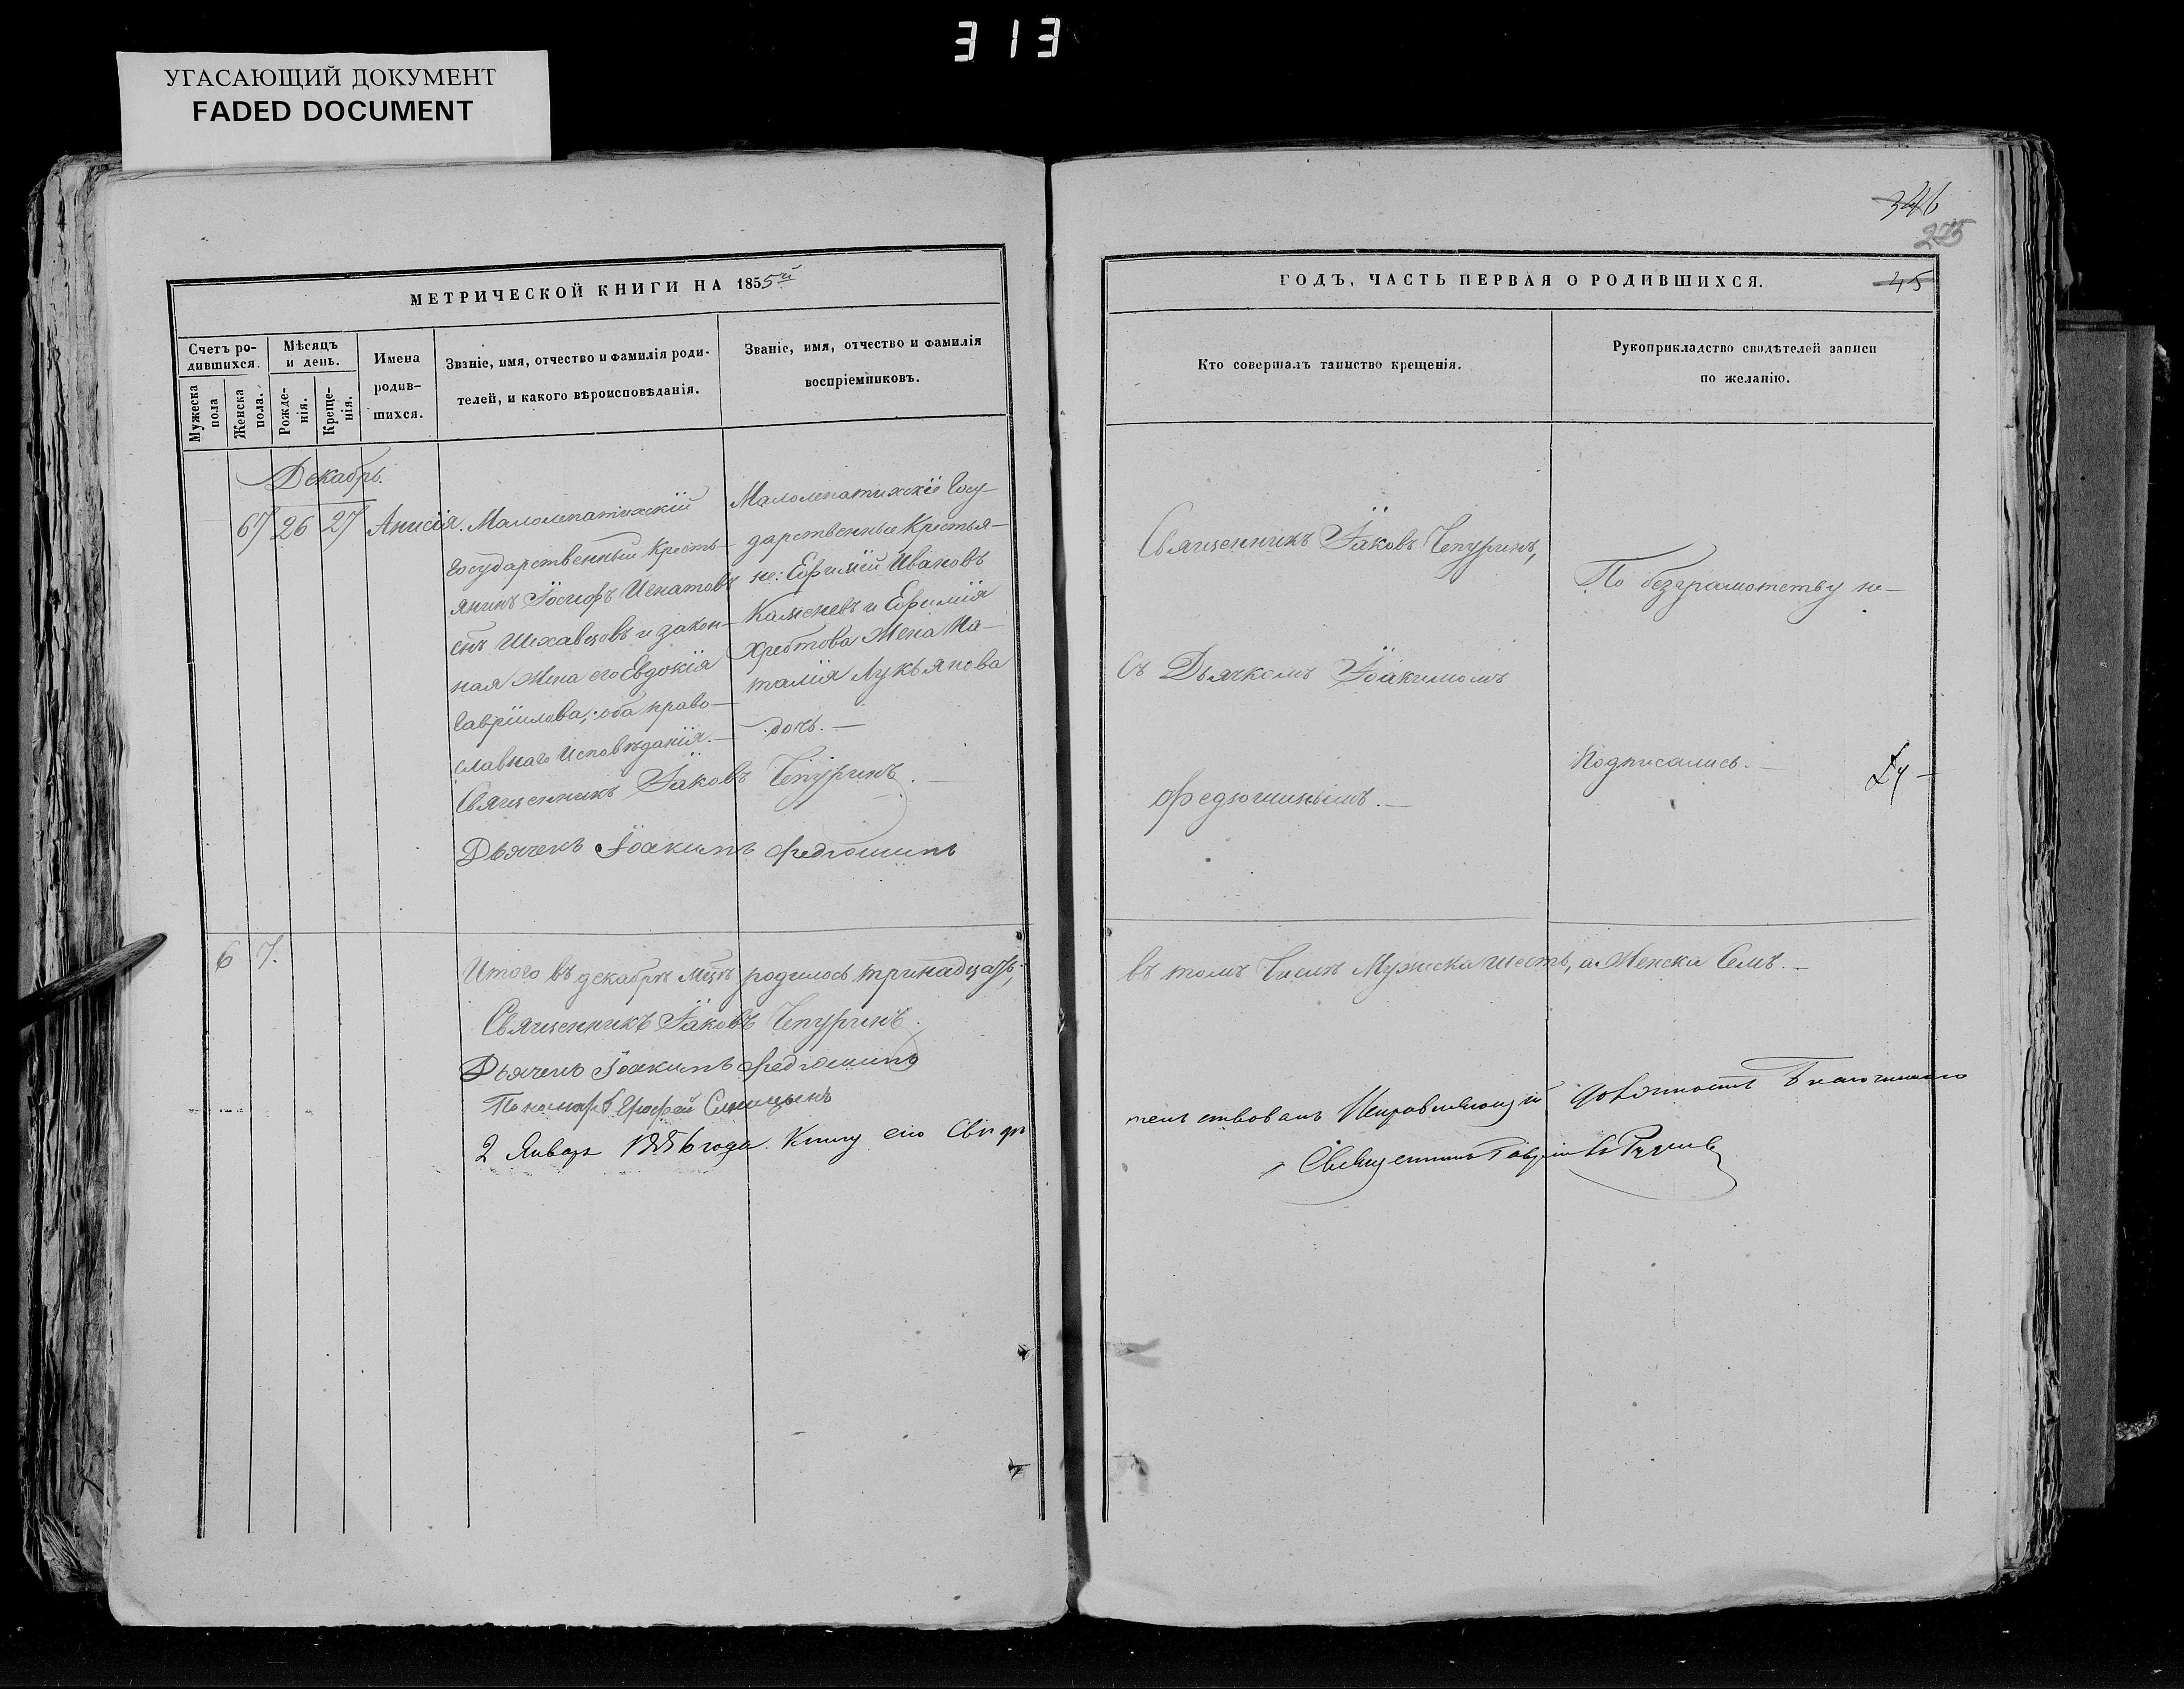 313
УГАСАЮЩИЙ ДОКУМЕНТ
FADED DOCUMENT
МЕТРИЧЕСКОЙ КНИГИ НА 1855й
Счетъ ро-
дившихся.
Мужеска
пола
Женска
пола.
Мѣсяцъ
и день.
Рожде-
нія.
Креще-
нія.
Имена
родив-
шихся.
Званіе, имя, отчество и фамилія роди-
телей, и какого вѣроисповѣданія.
Званіе, имя, отчество и фамилія
воспріемниковъ.
Декабрь.
67 26 27 Анисія.
Малолепатихскій
государственный Кресть-
янинъ Іосифъ Игнатовъ
снъ Шехавцовъ и закон-
ная Жена его Евдокія
Гавріилова; оба право-
славнаго Исповѣданія.
Малолепатихскіе Госу-
дарственные Крестья-
не: Ефимій Ивановъ
Каменевъ и Ефимія
Хребтова Жена На-
талія Лукьянова
дочь.
Священникъ Іаковъ Чепуринъ.
Дьячекъ Іоакимъ Федюшинъ
6 7.
Итого въ декабрѣ Мцѣ родилось тринадцать,
Священникъ Іаковъ Чепуринъ.
Дьячекъ Іоакимъ Федюшинъ
Пономарь Синицынъ
2 Январь 1856 года. Книгу сію Свидѣ
346
275
ГОДЪ, ЧАСТЬ ПЕРВАЯ О РОДИВШИХСЯ.
45
Кто совершалъ таинство крещенія.
Рукоприкладство свидѣтелей записи
по желанію.
Священникъ Іаковъ Чепуринъ,
съ Дьячкомъ Іоакимомъ
Федюшинымъ.
По безграмотству не-
Подписались.
въ томъ Числѣ Мужеска шесть, а Женска Семь.
тельствовалъ Исправляющій должность Благочиннаго
Священникъ Гавріилъ